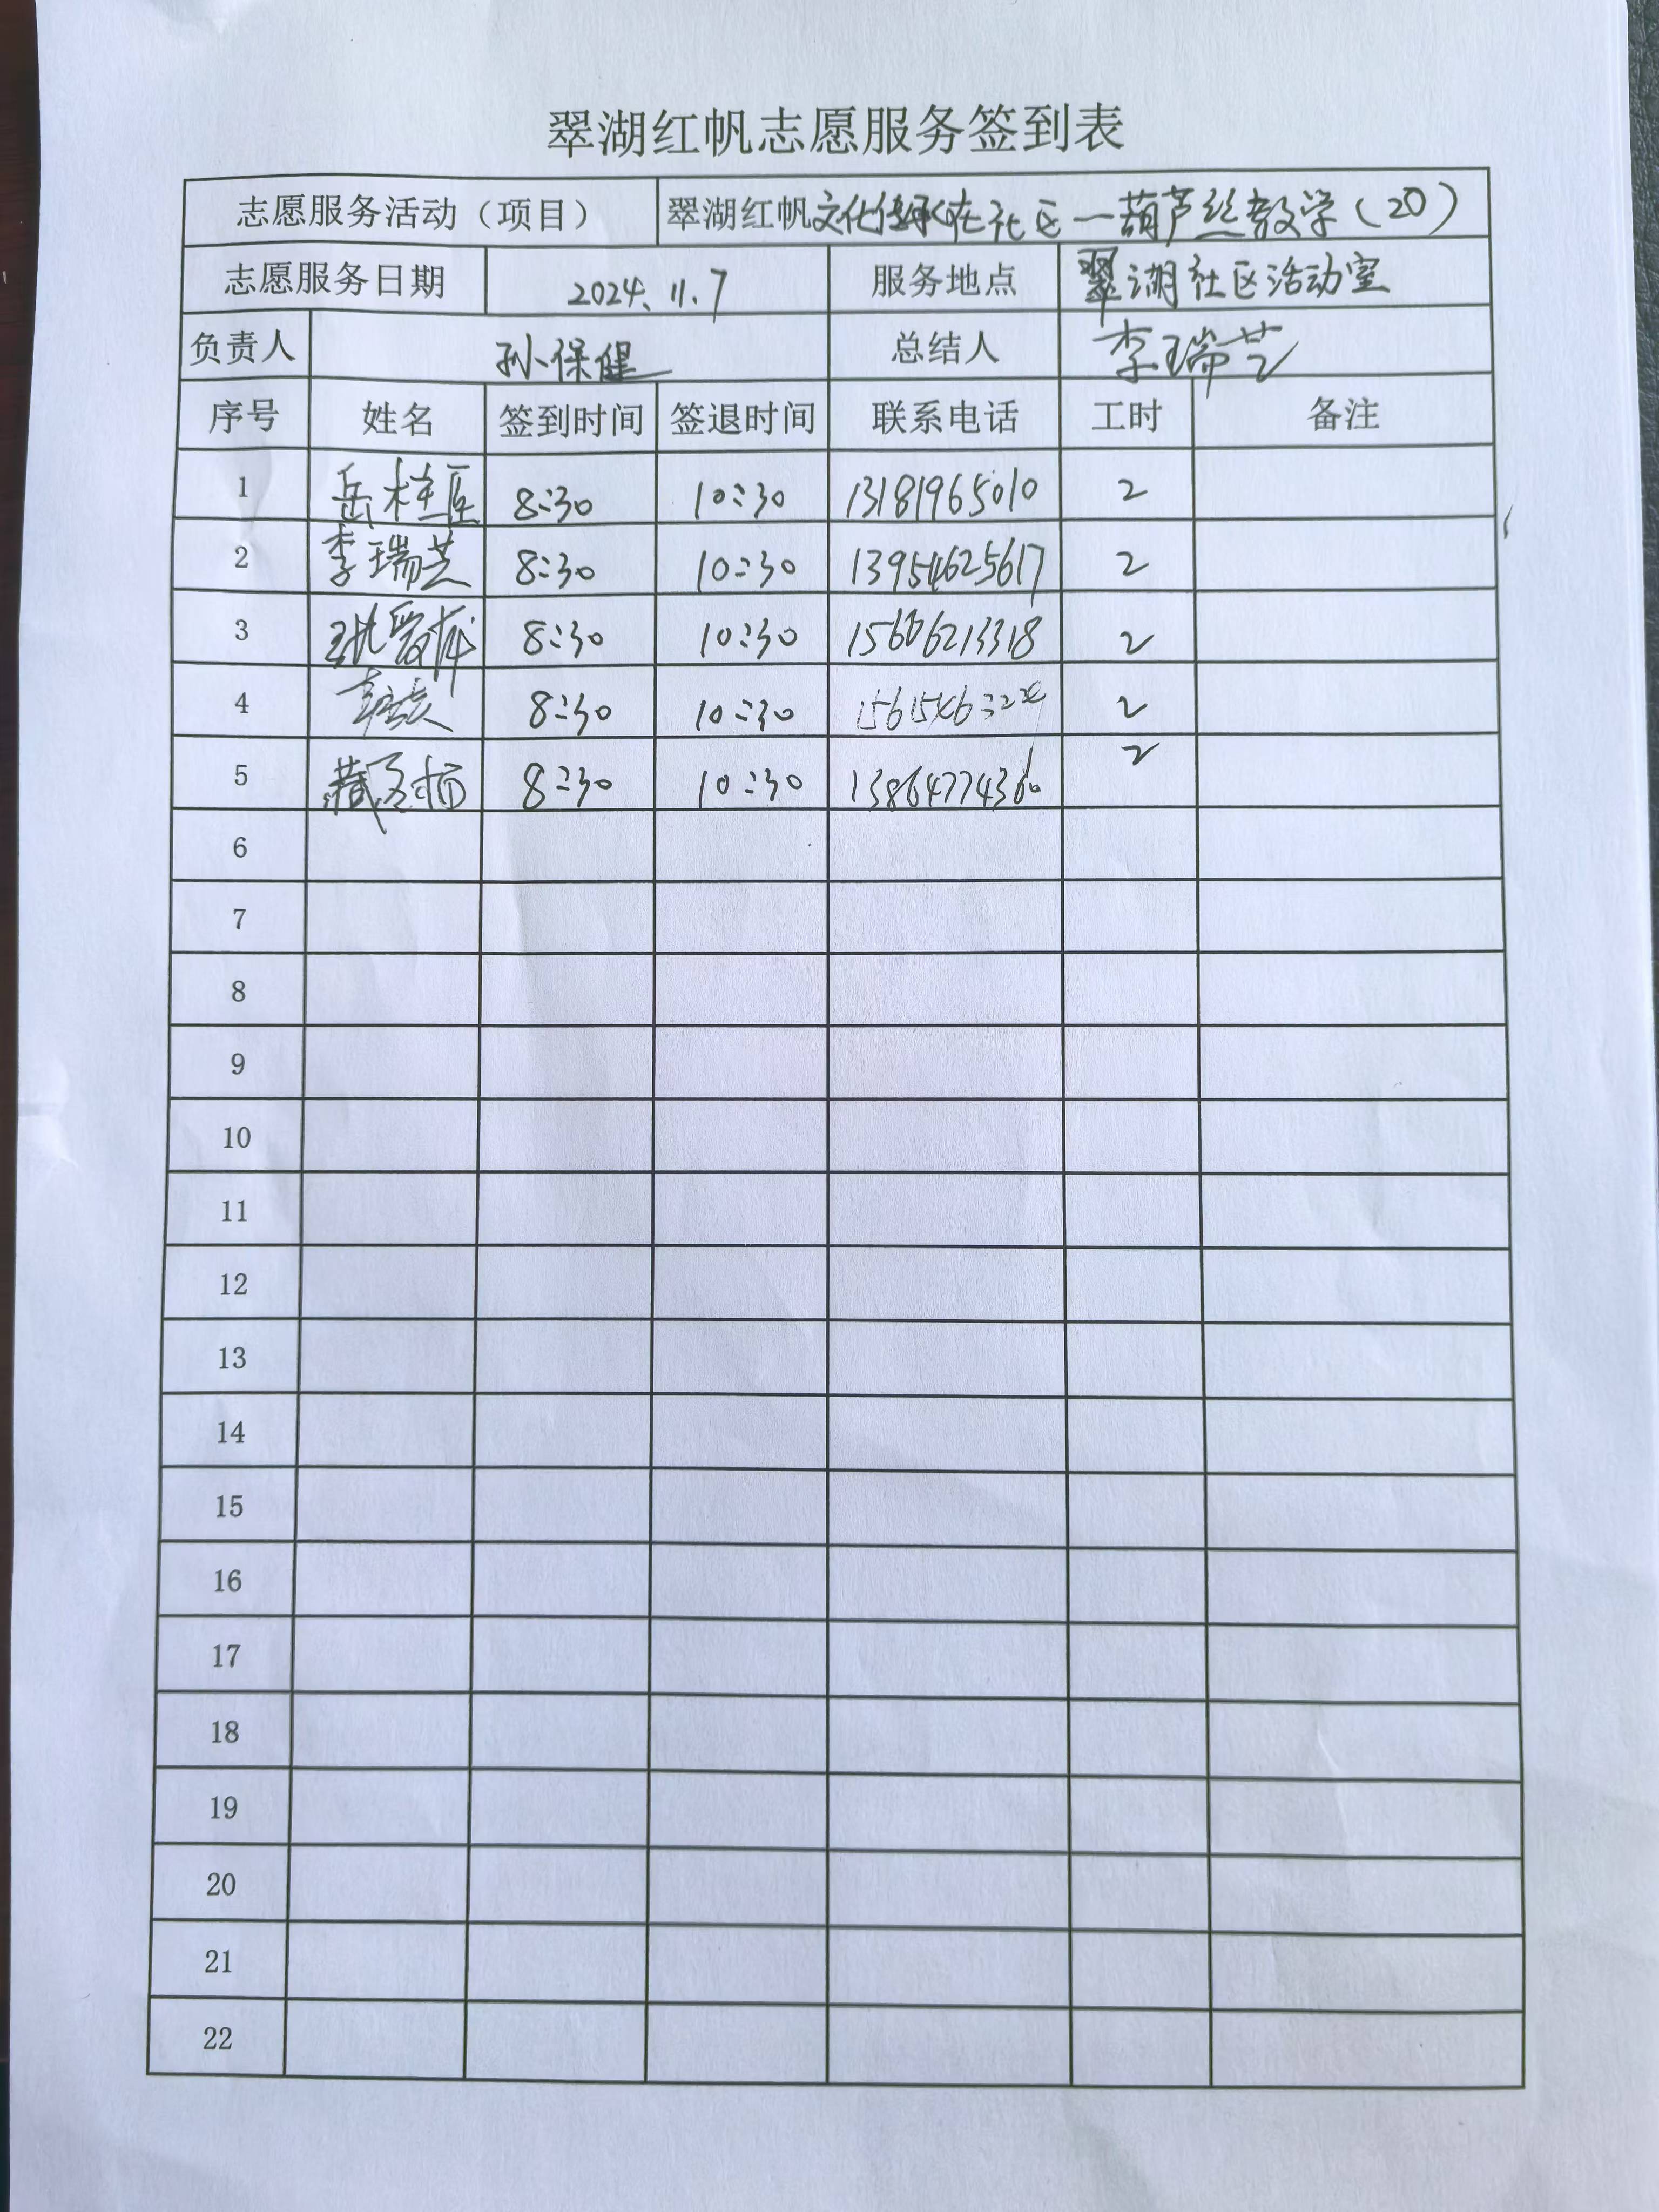 翠湖红帆志愿服务签到表
志愿服务活动（项目） 翠湖红帆文化传承在社区—葫芦丝教学（20）
志愿服务日期 2024.11.7 服务地点 翠湖社区活动室
负责人 孙保健 总结人 李瑞芝
序号 姓名 签到时间 签退时间 联系电话 工时 备注
1 岳桂臣 8:30 10:30 13181965010 2
2 李瑞芝 8:30 10:30 13954625617 2
3 8:30 10:30 15606213318 2
4 8:30 10:30 2
5 8:30 10:30 13864774360 2
6
7
8
9
10
11
12
13
14
15
16
17
18
19
20
21
22